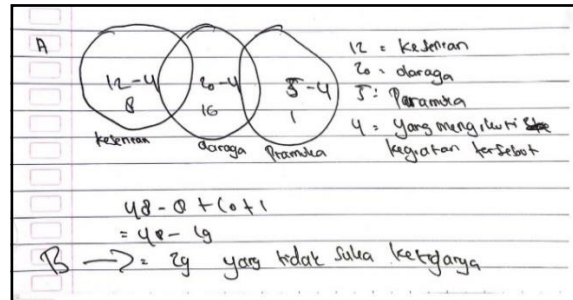 A
12-4
8
20-4
16
5-4
1
kesenian
olaraga
Pramuka
12 = kesenian
20 = olaraga
5 = Paramuka
4 = yang mengikuti
kegiatan tersebut
48 - 8 + 16 + 1
= 48 - 19
B → = 29 yang tidak suka ketiganya